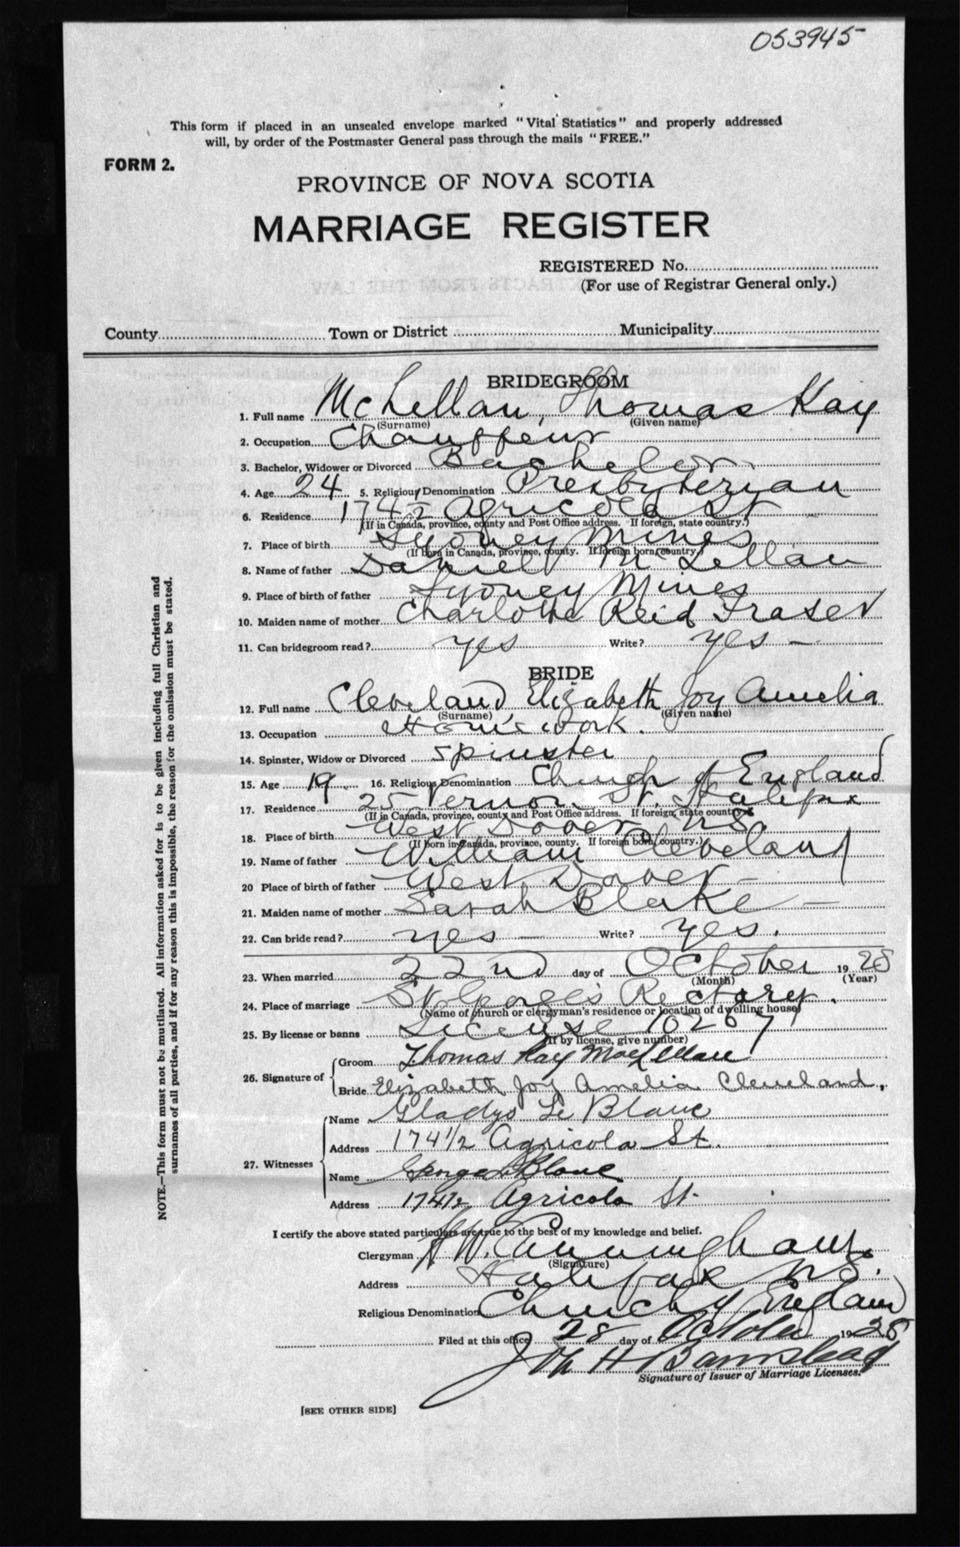 053945
This form if placed in an unsealed envelope marked "Vital Statistics" and properly addressed
will, by order of the Postmaster General pass through the mails "FREE."
FORM 2.
PROVINCE OF NOVA SCOTIA
MARRIAGE REGISTER
REGISTERED No.
(For use of Registrar General only.)
County Town or District Municipality
BRIDEGROOM
1. Full name McLellan, Thomas Kay
(Surname) (Given name)
2. Occupation Chauffeur
3. Bachelor, Widower or Divorced Bachelor
4. Age 24 5. Religious Denomination Presbyterian
6. Residence 174½ Agricola St
(If in Canada, province, county and Post Office address. If foreign, state country.)
7. Place of birth Sydney Mines
(If born in Canada, province, county. If foreign born, country.)
8. Name of father Daniel McLellan
9. Place of birth of father Sydney Mines
10. Maiden name of mother Charlotte Reid Fraser
11. Can bridegroom read? yes Write? yes —
BRIDE
12. Full name Cleveland Elizabeth Joy Amelia
(Surname) (Given name)
13. Occupation Housework.
14. Spinster, Widow or Divorced Spinster
15. Age 19 16. Religious Denomination Church of England
17. Residence 25 Vernon St. Halifax
(If in Canada, province, county and Post Office address. If foreign, state country.)
18. Place of birth West Dover N.S.
(If born in Canada, province, county. If foreign born, country.)
19. Name of father William Cleveland
20 Place of birth of father West Dover —
21. Maiden name of mother Sarah Blake —
22. Can bride read? yes — Write? yes.
23. When married 22nd day of October 1928
(Month) (Year)
24. Place of marriage St. George's Rectory.
(Name of church or clergyman's residence or location of dwelling house)
25. By license or banns License 10267
(If by license, give number)
26. Signature of
Groom Thomas Kay MacLellan
Bride Elizabeth Joy Amelia Cleveland.
27. Witnesses
Name Gladys Le Blanc
Address 174½ Agricola St.
Name George LeBlanc
Address 174½ Agricola St.
I certify the above stated particulars are true to the best of my knowledge and belief.
Clergyman H.W. Cunningham
(Signature)
Address Halifax N.S.
Religious Denomination Church of England
Filed at this office 28 day of October 1928
Signature of Issuer of Marriage Licenses.
[SEE OTHER SIDE]
NOTE.—This form must not be mutilated. All information asked for is to be given including full Christian and
surnames of all parties, and if for any reason this is impossible, the reason for the omission must be stated.